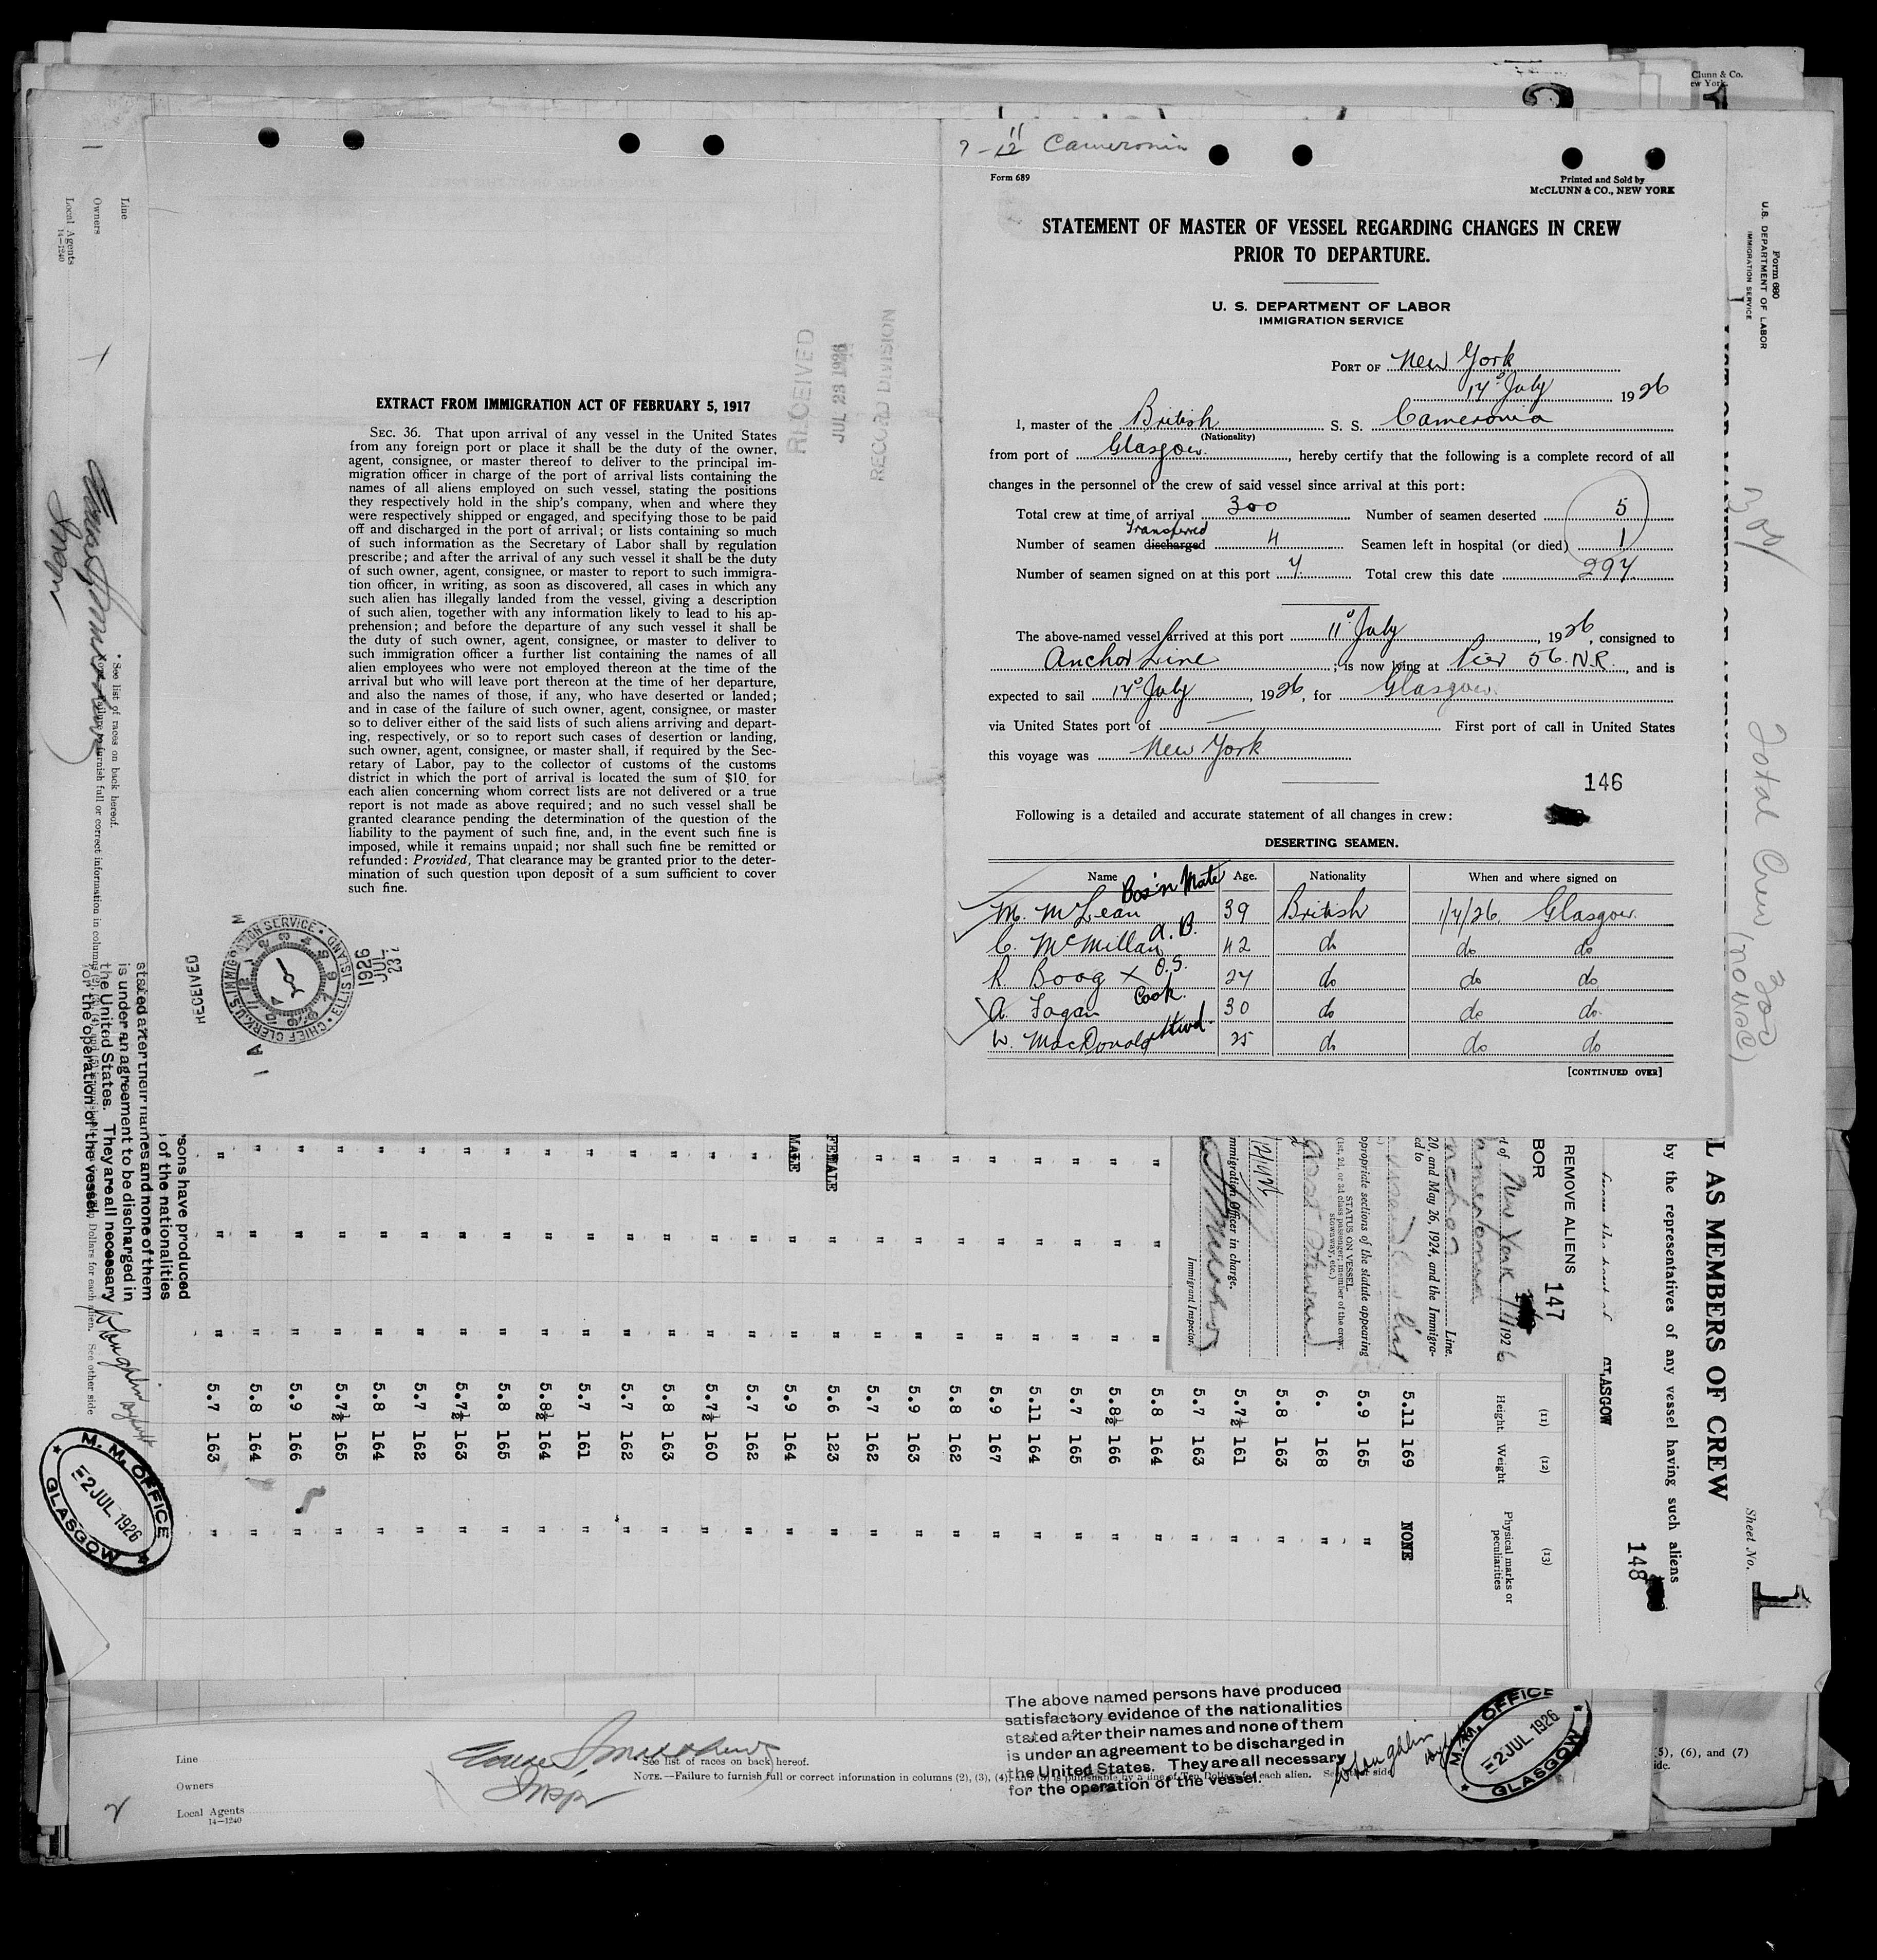 Clunn & Co.
ew York
7-12 11 Cameronia
Form 689
Printed and Sold by
McCLUNN & CO., NEW YORK
STATEMENT OF MASTER OF VESSEL REGARDING CHANGES IN CREW
PRIOR TO DEPARTURE.
U. S. DEPARTMENT OF LABOR
IMMIGRATION SERVICE
PORT OF New York
14th July 1926
I, master of the British S. S. Cameronia
(Nationality)
from port of Glasgow., hereby certify that the following is a complete record of all
changes in the personnel of the crew of said vessel since arrival at this port:
Total crew at time of arrival 300 Number of seamen deserted 5
Transferred
Number of seamen discharged 4 Seamen left in hospital (or died) 1
Number of seamen signed on at this port 7. Total crew this date 297.
The above-named vessel arrived at this port 11th July, 1926, consigned to
Anchor Line, is now lying at Pier 56. N.R., and is
expected to sail 17th July, 1926, for Glasgow.
via United States port of — First port of call in United States
this voyage was New York
146
Following is a detailed and accurate statement of all changes in crew:
DESERTING SEAMEN.
Name Age. Nationality When and where signed on
M. McLean Bos'n Mate 39 British 1/7/26. Glasgow.
C. McMillan A. B. 42 do do do
R Boog x O.S. 27 do do do
A. Fagan Cook. 30 do do do.
W. MacDonald Stwd. 25 do do do
[CONTINUED OVER]
EXTRACT FROM IMMIGRATION ACT OF FEBRUARY 5, 1917
SEC. 36. That upon arrival of any vessel in the United States
from any foreign port or place it shall be the duty of the owner,
agent, consignee, or master thereof to deliver to the principal im-
migration officer in charge of the port of arrival lists containing the
names of all aliens employed on such vessel, stating the positions
they respectively hold in the ship's company, when and where they
were respectively shipped or engaged, and specifying those to be paid
off and discharged in the port of arrival; or lists containing so much
of such information as the Secretary of Labor shall by regulation
prescribe; and after the arrival of any such vessel it shall be the duty
of such owner, agent, consignee, or master to report to such immigra-
tion officer, in writing, as soon as discovered, all cases in which any
such alien has illegally landed from the vessel, giving a description
of such alien, together with any information likely to lead to his ap-
prehension; and before the departure of any such vessel it shall be
the duty of such owner, agent, consignee, or master to deliver to
such immigration officer a further list containing the names of all
alien employees who were not employed thereon at the time of the
arrival but who will leave port thereon at the time of her departure,
and also the names of those, if any, who have deserted or landed;
and in case of the failure of such owner, agent, consignee, or master
so to deliver either of the said lists of such aliens arriving and depart-
ing, respectively, or so to report such cases of desertion or landing,
such owner, agent, consignee, or master shall, if required by the Sec-
retary of Labor, pay to the collector of customs of the customs
district in which the port of arrival is located the sum of $10 for
each alien concerning whom correct lists are not delivered or a true
report is not made as above required; and no such vessel shall be
granted clearance pending the determination of the question of the
liability to the payment of such fine, and, in the event such fine is
imposed, while it remains unpaid; nor shall such fine be remitted or
refunded: Provided, That clearance may be granted prior to the deter-
mination of such question upon deposit of a sum sufficient to cover
such fine.
RECEIVED
JUL 23 1926
RECORD DIVISION
RECEIVED
CHIEF CLERK, U.S. IMMIGRATION SERVICE • ELLIS ISLAND
23 JUL 1926
Line
Owners
Local Agents
14—1240
* See list of races on back hereof.
Form 680
U.S. DEPARTMENT OF LABOR
IMMIGRATION SERVICE
Total Crew 300
(no wac)
L AS MEMBERS OF CREW
by the representatives of any vessel having such aliens
GLASGOW
Sheet No. 1
148
REMOVE ALIENS
BOR
147
t of New York 7/11 1926
Line.
20, and May 26, 1924, and the Immigra-
ed to
ppropriate sections of the statute appearing
STATUS ON VESSEL
(1st, 2d, or 3d class passenger; member of the crew;
stowaway, etc.)
mmigration Officer in charge.
Immigrant Inspector.
(11) (12) (13)
Height. Weight Physical marks or
peculiarities
5.11 169 NONE
5.9 165 "
6. 168 "
5.8 163 "
5.7½ 161 "
5.7 163 "
5.8 164 "
5.8½ 166 "
5.7 165 "
5.11 164 "
5.9 167 "
5.8 162 "
5.9 163 "
5.7 162 "
FEMALE 5.6 123 "
MALE 5.9 164 "
5.7 162 "
5.7½ 160 "
5.8 163 "
5.7 162 "
5.7 161 "
5.8½ 164 "
5.8 165 "
5.7½ 163 "
5.7 162 "
5.8 164 "
5.7½ 165 "
5.9 166 "
5.8 164 "
5.7 163 "
sons have produced
of the nationalities
stated after their names and none of them
is under an agreement to be discharged in
the United States. They are all necessary
for the operation of the vessel.
Dollars for each alien. See other side
M. M. OFFICE
2 JUL 1926
GLASGOW
The above named persons have produced
satisfactory evidence of the nationalities
stated after their names and none of them
is under an agreement to be discharged in
the United States. They are all necessary
for the operation of the vessel.
M. M. OFFICE
2 JUL 1926
GLASGOW
Line
Owners
Local Agents
14—1240
See list of races on back hereof.
NOTE.—Failure to furnish full or correct information in columns (2), (3), (4), and (5) is punishable by a fine of Ten Dollars for each alien. See other side
Inspr
2
5), (6), and (7)
ide.